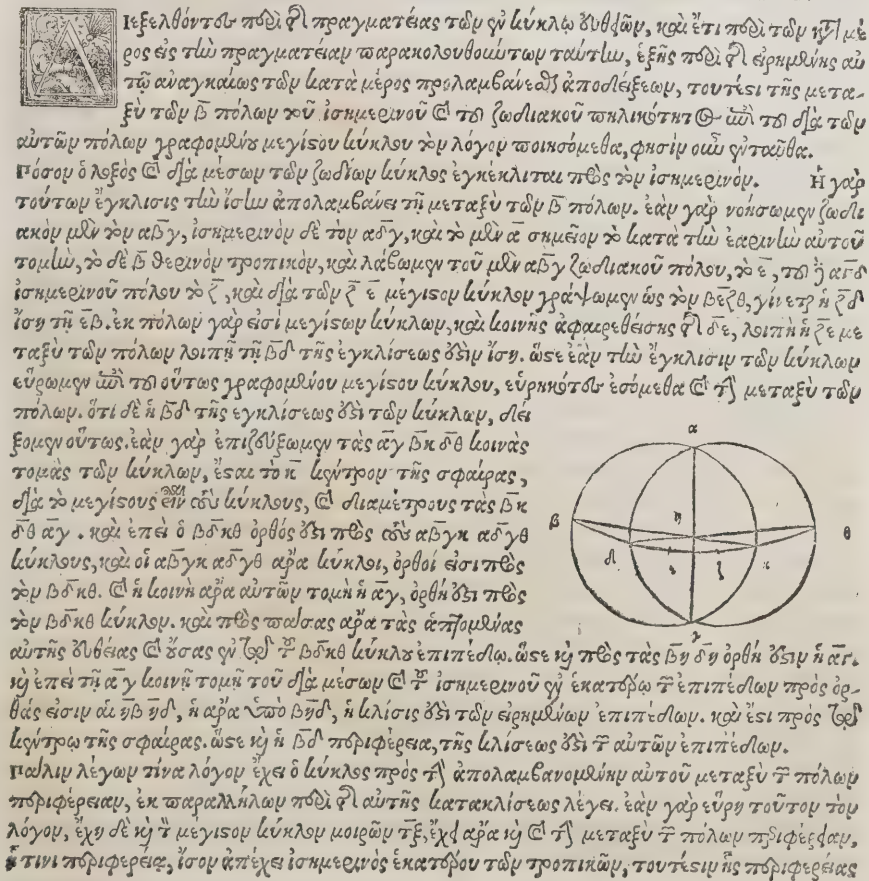 Διεξελθόντος περὶ τῆς πραγματείας τῶν ἐν κύκλῳ εὐθειῶν, καὶ ἔτι περὶ τῶν κατὰ μέ
ρος εἰς τὴν πραγματείαν παρακολουθούντων ταύτην, ἑξῆς περὶ τῆς εἰρημένης αὐ
τῷ ἀναγκαίως τῶν κατὰ μέρος προλαμβάνεσθαι ἀποδείξεων, τουτέστι τῆς μετα-
ξὺ τῶν β̄ πόλων τοῦ ἰσημερινοῦ καὶ τοῦ ζωδιακοῦ πηλικότητος ἐπὶ τοῦ διὰ τῶν
αὐτῶν πόλων γραφομένου μεγίστου κύκλου τὸν λόγον ποιησόμεθα, φησὶν οὖν ἐνταῦθα.
Πόσον ὁ λοξὸς καὶ διὰ μέσων τῶν ζωδίων κύκλος ἐγκέκλιται πρὸς τὸν ἰσημερινόν. Ἡ γὰρ
τούτων ἔγκλισις τὴν ἴσην ἀπολαμβάνει τῇ μεταξὺ τῶν β̄ πόλων. ἐὰν γὰρ νοήσωμεν ζωδι
ακὸν μὲν τὸν αβ̄γ, ἰσημερινὸν δὲ τὸν αδ̄γ, καὶ τὸ μὲν ᾱ σημεῖον τὸ κατὰ τὴν ἐαρινὴν αὐτοῦ
τομὴν, τὸ δὲ β̄ θερινὸν τροπικὸν, καὶ λάβωμεν τοῦ μὲν αβ̄γ ζωδιακοῦ πόλον, τὸ ε̄, τοῦ δὲ αγ̄δ
ἰσημερινοῦ πόλον τὸ ζ̄, καὶ διὰ τῶν ζ̄ ε̄ μέγιστον κύκλον γράψωμεν ὡς τὸν βε̄ζθ, γίνεται ἡ ζ̄δ
ἴση τῇ ε̄β. ἐκ πόλων γάρ εἰσι μεγίστων κύκλων, καὶ κοινῆς ἀφαιρεθείσης τῆς δ̄ε, λοιπὴ ἡ ζ̄ε με
ταξὺ τῶν πόλων λοιπῇ τῇ β̄δ τῆς ἐγκλίσεως ἐστὶν ἴση. ὥστε ἐὰν τὴν ἔγκλισιν τῶν κύκλων
εὕρωμεν ἐπὶ τοῦ οὕτως γραφομένου μεγίστου κύκλου, εὑρηκότες ἐσόμεθα καὶ τὴν μεταξὺ τῶν
πόλων. ὅτι δὲ ἡ β̄δ τῆς ἐγκλίσεως ἐστὶ τῶν κύκλων, δεί
ξομεν οὕτως. ἐὰν γὰρ ἐπιζεύξωμεν τὰς ᾱγ β̄κ δ̄θ κοινὰς
τομὰς τῶν κύκλων, ἔσται τὸ κ̄ κέντρον τῆς σφαίρας,
διὰ τὸ μεγίστους εἶναι τοὺς κύκλους, καὶ διαμέτρους τὰς β̄κ
δ̄θ ᾱγ. καὶ ἐπεὶ ὁ βδ̄κθ ὀρθός ἐστι πρὸς τοὺς αβ̄γκ αδ̄γθ
κύκλους, καὶ οἱ αβ̄γκ αδ̄γθ ἄρα κύκλοι, ὀρθοί εἰσι πρὸς
τὸν βδ̄κθ. καὶ ἡ κοινὴ ἄρα αὐτῶν τομὴ ἡ ᾱγ, ὀρθή ἐστι πρὸς
τὸν βδ̄κθ κύκλον. καὶ πρὸς πάσας ἄρα τὰς ἁπτομένας
αὐτῆς εὐθείας καὶ οὔσας ἐν τῷ τοῦ βδ̄κθ κύκλου ἐπιπέδῳ. ὥστε καὶ πρὸς τὰς β̄η δ̄η ὀρθή ἐστιν ἡ ᾱγ.
καὶ ἐπεὶ τῇ ᾱγ κοινῇ τομῇ τοῦ διὰ μέσων καὶ τοῦ ἰσημερινοῦ ἐν ἑκατέρῳ τῶν ἐπιπέδων πρὸς ὀρ-
θάς εἰσιν αἱ η̄β η̄δ, ἡ ἄρα ὑπὸ βη̄δ, ἡ κλίσις ἐστὶ τῶν εἰρημένων ἐπιπέδων. καὶ ἔστι πρὸς τῷ
κέντρῳ τῆς σφαίρας. ὥστε καὶ ἡ β̄δ περιφέρεια, τῆς κλίσεως ἐστὶ τῶν αὐτῶν ἐπιπέδων.
Πάλιν λέγων τίνα λόγον ἔχει ὁ κύκλος πρὸς τὴν ἀπολαμβανομένην αὐτοῦ μεταξὺ τῶν πόλων
περιφέρειαν, ἐκ παραλλήλων περὶ τῆς αὐτῆς κατακλίσεως λέγει. ἐὰν γὰρ εὕρῃ τοῦτον τὸν
λόγον, ἔχῃ δὲ καὶ τὸν μέγιστον κύκλον μοιρῶν τ̄ξ, ἔχει ἄρα καὶ τὴν μεταξὺ τῶν πόλων περιφέρειαν,
ᾗ τινι περιφερείᾳ, ἴσον ἀπέχει ἰσημερινὸς ἑκατέρου τῶν τροπικῶν, τουτέστιν ἧς περιφερείας
α
β
η
θ
δ
ε
ζ
κ
γ